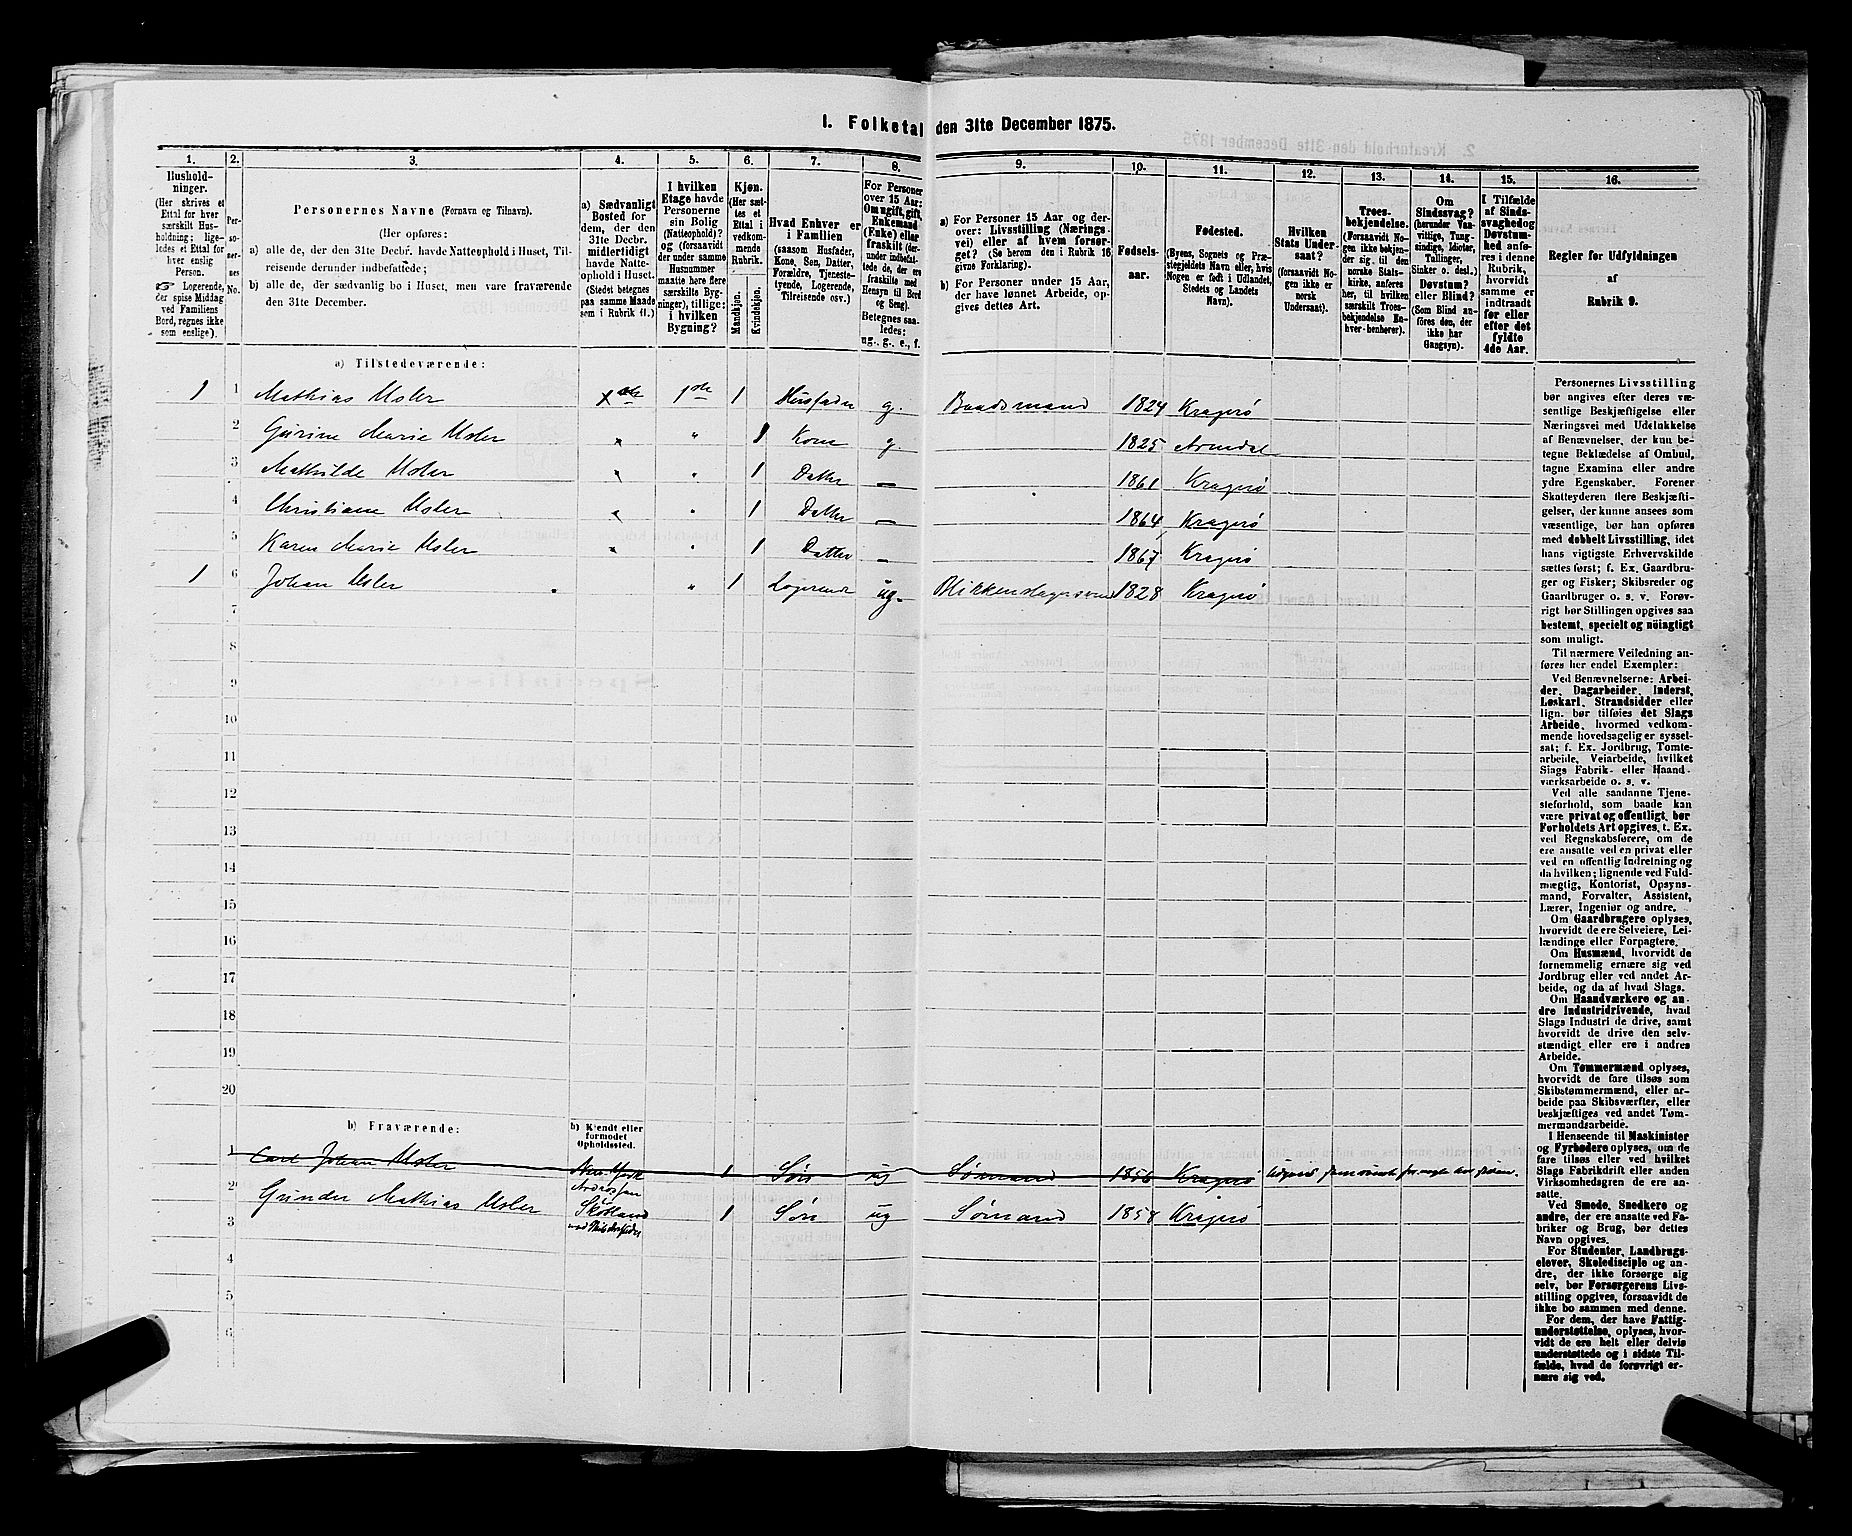 I. Folketal den 31te December 1875.
1. 2. 3. 4. 5. 6. 7. 8. 9. 10. 11. 12. 13. 14. 15. 16.
Husholdninger.
(Her skrives et
Ettal for hver
særskilt Husholdning;
ligeledes et Ettal for
hver enslig
Person.
Logerende,
der spise Middag
ved Familiens
Bord, regnes ikke
som enslige).
Personernes No.
Personernes Navne (Fornavn og Tilnavn).
(Her opføres:
a) alle de, der den 31te Decbr. havde Natteophold i Huset, Tilreisende derunder indbefattede;
b) alle de, der sædvanlig bo i Huset, men vare fraværende
den 31te December.
a) Sædvanligt
Bosted for
dem, der den
31te Decbr.
midlertidigt
havde Natteophold i Huset.
(Stedet betegnes
paa samme Maade
som i Rubrik 11.)
I hvilken
Etage havde
Personerne
sin Bolig
(Natteophold)?
og (forsaavidt
der under samme
Husnummer
maatte høre flere
særskilte Bygninger), tillige:
i hvilken
Bygning?
Kjøn.
(Her sættes et
Ettal i
vedkommende
Rubrik.
Mandkjøn.
Kvindekjøn.
Hvad Enhver er
i Familien
(saasom Husfader,
Kone, Søn, Datter,
Forældre, Tjenestetyende, Logerende,
Tilreisende osv.)
For Personer
over 15 Aar:
Om ugift, gift,
Enkemand
(Enke) eller
fraskilt (derunder indbefattede de, der ere
fraskilte med
Hensyn til Bord
og Seng).
Betegnes saaledes:
ug., g., e., f.
a) For Personer 15 Aar og derover: Livsstilling (Næringsvei) eller af hvem forsørget? (Se herom den i Rubrik 16
givne Forklaring).
b) For Personer under 15 Aar,
der have lønnet Arbeide, opgives dettes Art.
Fødselsaar.
Fødested.
(Byens, Sognets og Præstegjeldets Navn eller, hvis
Nogen er født i Udlandet,
Stedets og Landets
Navn).
Hvilken
Stats Undersaat?
(forsaavidt Nogen ikke er
norsk
Undersaat).
Troesbekjendelse.
(Forsaavidt Nogen ikke bekjender sig til den
norske Statskirke, anføres
her, til hvilken
særskilt Troesbekjendelse Enhver henhører).
Om
Sindssvag?
(herunder Vanvittige, Tungsindige, Idioter,
Tullinger,
Sinker o. desl.)
Døvstum?
eller Blind?
(Som Blind anføres den, der
ikke har
Gangsyn).
I Tilfælde
af Sindssvaghed og
Døvstumhed anføres i denne
Rubrik,
hvorvidt
samme er
indtraadt
før eller
efter det
fyldte
4de Aar.
Regler for Udfyldningen
af
Rubrik 9.
a) Tilstedeværende:
1 1 Mathias Usler 1ste 1 Husfader g. Baadsmand 1824 Kragerø
2 Gurine Marie Usler " 1 Kone g. 1825 Arendal
3 Mathilde Usler " 1 Datter — 1861 Kragerø
4 Christiane Usler " 1 Datter — 1864 Kragerø
5 Karen Marie Usler " 1 Datter — 1867 Kragerø
1 6 Johan Usler " 1 Logerende ug. Blikkenslagersvend 1828 Kragerø
7
8
9
10
11
12
13
14
15
16
17
18
19
20
b) Fraværende:
b) Kjendt eller
formodet
Opholdssted.
1 Carl Johan Usler New York 1 Søn ug Sømand 1856 Kragerø
2 Gunder Mathias Usler Ardrossan Skotland 1 Søn ug Sømand 1858 Kragerø
3
4
5
6
Personernes Livsstilling
bør angives efter deres væsentlige Beskjæftigelse eller
Næringsvei med Udelukkelse
af Benævnelser, der kun betegne Beklædelse af Ombud,
tagne Examina eller andre
ydre Egenskaber. Forener
Skatteyderen flere Beskjæftigelser, der kunne ansees som
væsentlige, bør han opføres
med dobbelt Livsstilling, idet
hans vigtigste Erhvervskilde
sættes først; f. Ex. Gaardbruger og Fisker; Skibsreder og
Gaardbruger o. s. v. Forøvrigt bør Stillingen opgives saa
bestemt, specielt og nöiagtigt
som muligt.
Til nærmere Veiledning anføres her endel Exempler:
Ved Benævnelserne: Arbeider, Dagarbeider, Inderst,
Løskarl, Strandsidder eller
lign. bør tilføies det Slags
Arbeide, hvormed vedkommende hovedsagelig er sysselsat; f. Ex. Jordbrug, Tomtearbeide, Veiarbeide, hvilket
Slags Fabrik- eller Haandværksarbeide o. s. v.
Ved alle saadanne Tjenesteforhold, som baade kan
være privat og offentligt, bør
Forholdets Art opgives, t. Ex.
ved Regnskabsførere, om de
ere ansatte ved en privat eller
ved en offentlig Indretning og
da hvilken; lignende ved Fuldmægtig, Kontorist, Opsynsmand, Forvalter, Assistent,
Lærer, Ingeniør og andre.
Om Gaardbrugere oplyses,
hvorvidt de ere Selveiere, Leilændinge eller Forpagtere.
Om Husmænd, hvorvidt de
fornemmelig ernære sig ved
Jordbrug eller ved andet Arbeide, og da af hvad Slags.
Om Haandværkere og andre Industridrivende, hvad
Slags Industri de drive, samt
hvorvidt de drive den selvstændigt eller ere i andres
Arbeide.
Om Tømmermænd oplyses,
hvorvidt de fare tilsøs som
Skibstømmermænd, eller arbeide paa Skibsværfter, eller
beskjæftiges ved andet Tømmermandsarbeide.
I Henseende til Maskinister
og Fyrbødere oplyses, om de
fare tilsøs eller ved hvilket
Slags Fabrikdrift eller anden
Virksomhedsgren de ere ansatte.
Ved Smede, Snedkere og
andre, der ere ansatte ved Fabriker og Brug, bør dettes
Navn opgives.
For Studenter, Landbrugselever, Skoledisciple og andre, der ikke forsørge sig
selv, bør Forsørgerens Livsstilling opgives, forsaavidt de
ikke bo sammen med denne.
For dem, der have Fattigunderstøttelse, oplyses, hvorvidt de ere helt eller delvis
understøttede og i sidste Tilfælde, hvad de forøvrigt ernære sig ved.